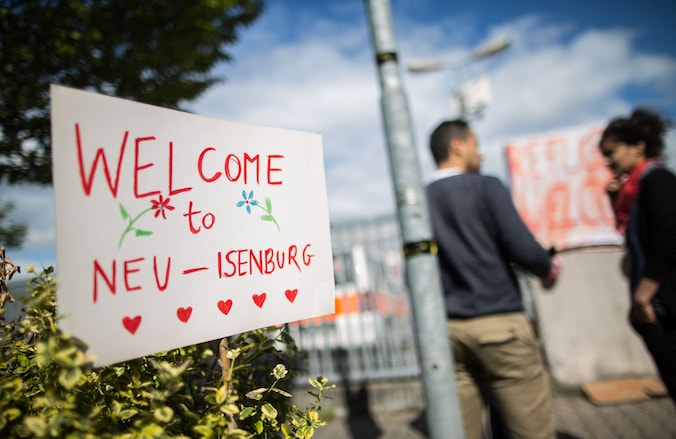 WELCOME
to
NEU-ISENBURG